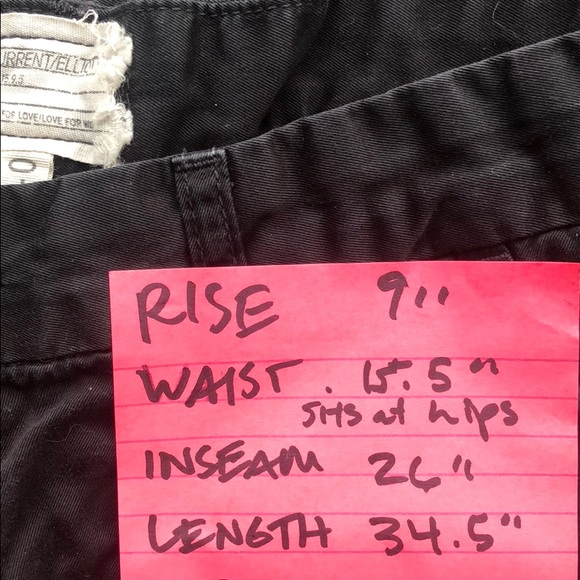 URRENT/ELLIO
15.9.5
FOR LOVE/LOVE FOR
0
RISE 9"
WAIST . 15.5"
sits at hips
INSEAM 26"
LENGTH 34.5"